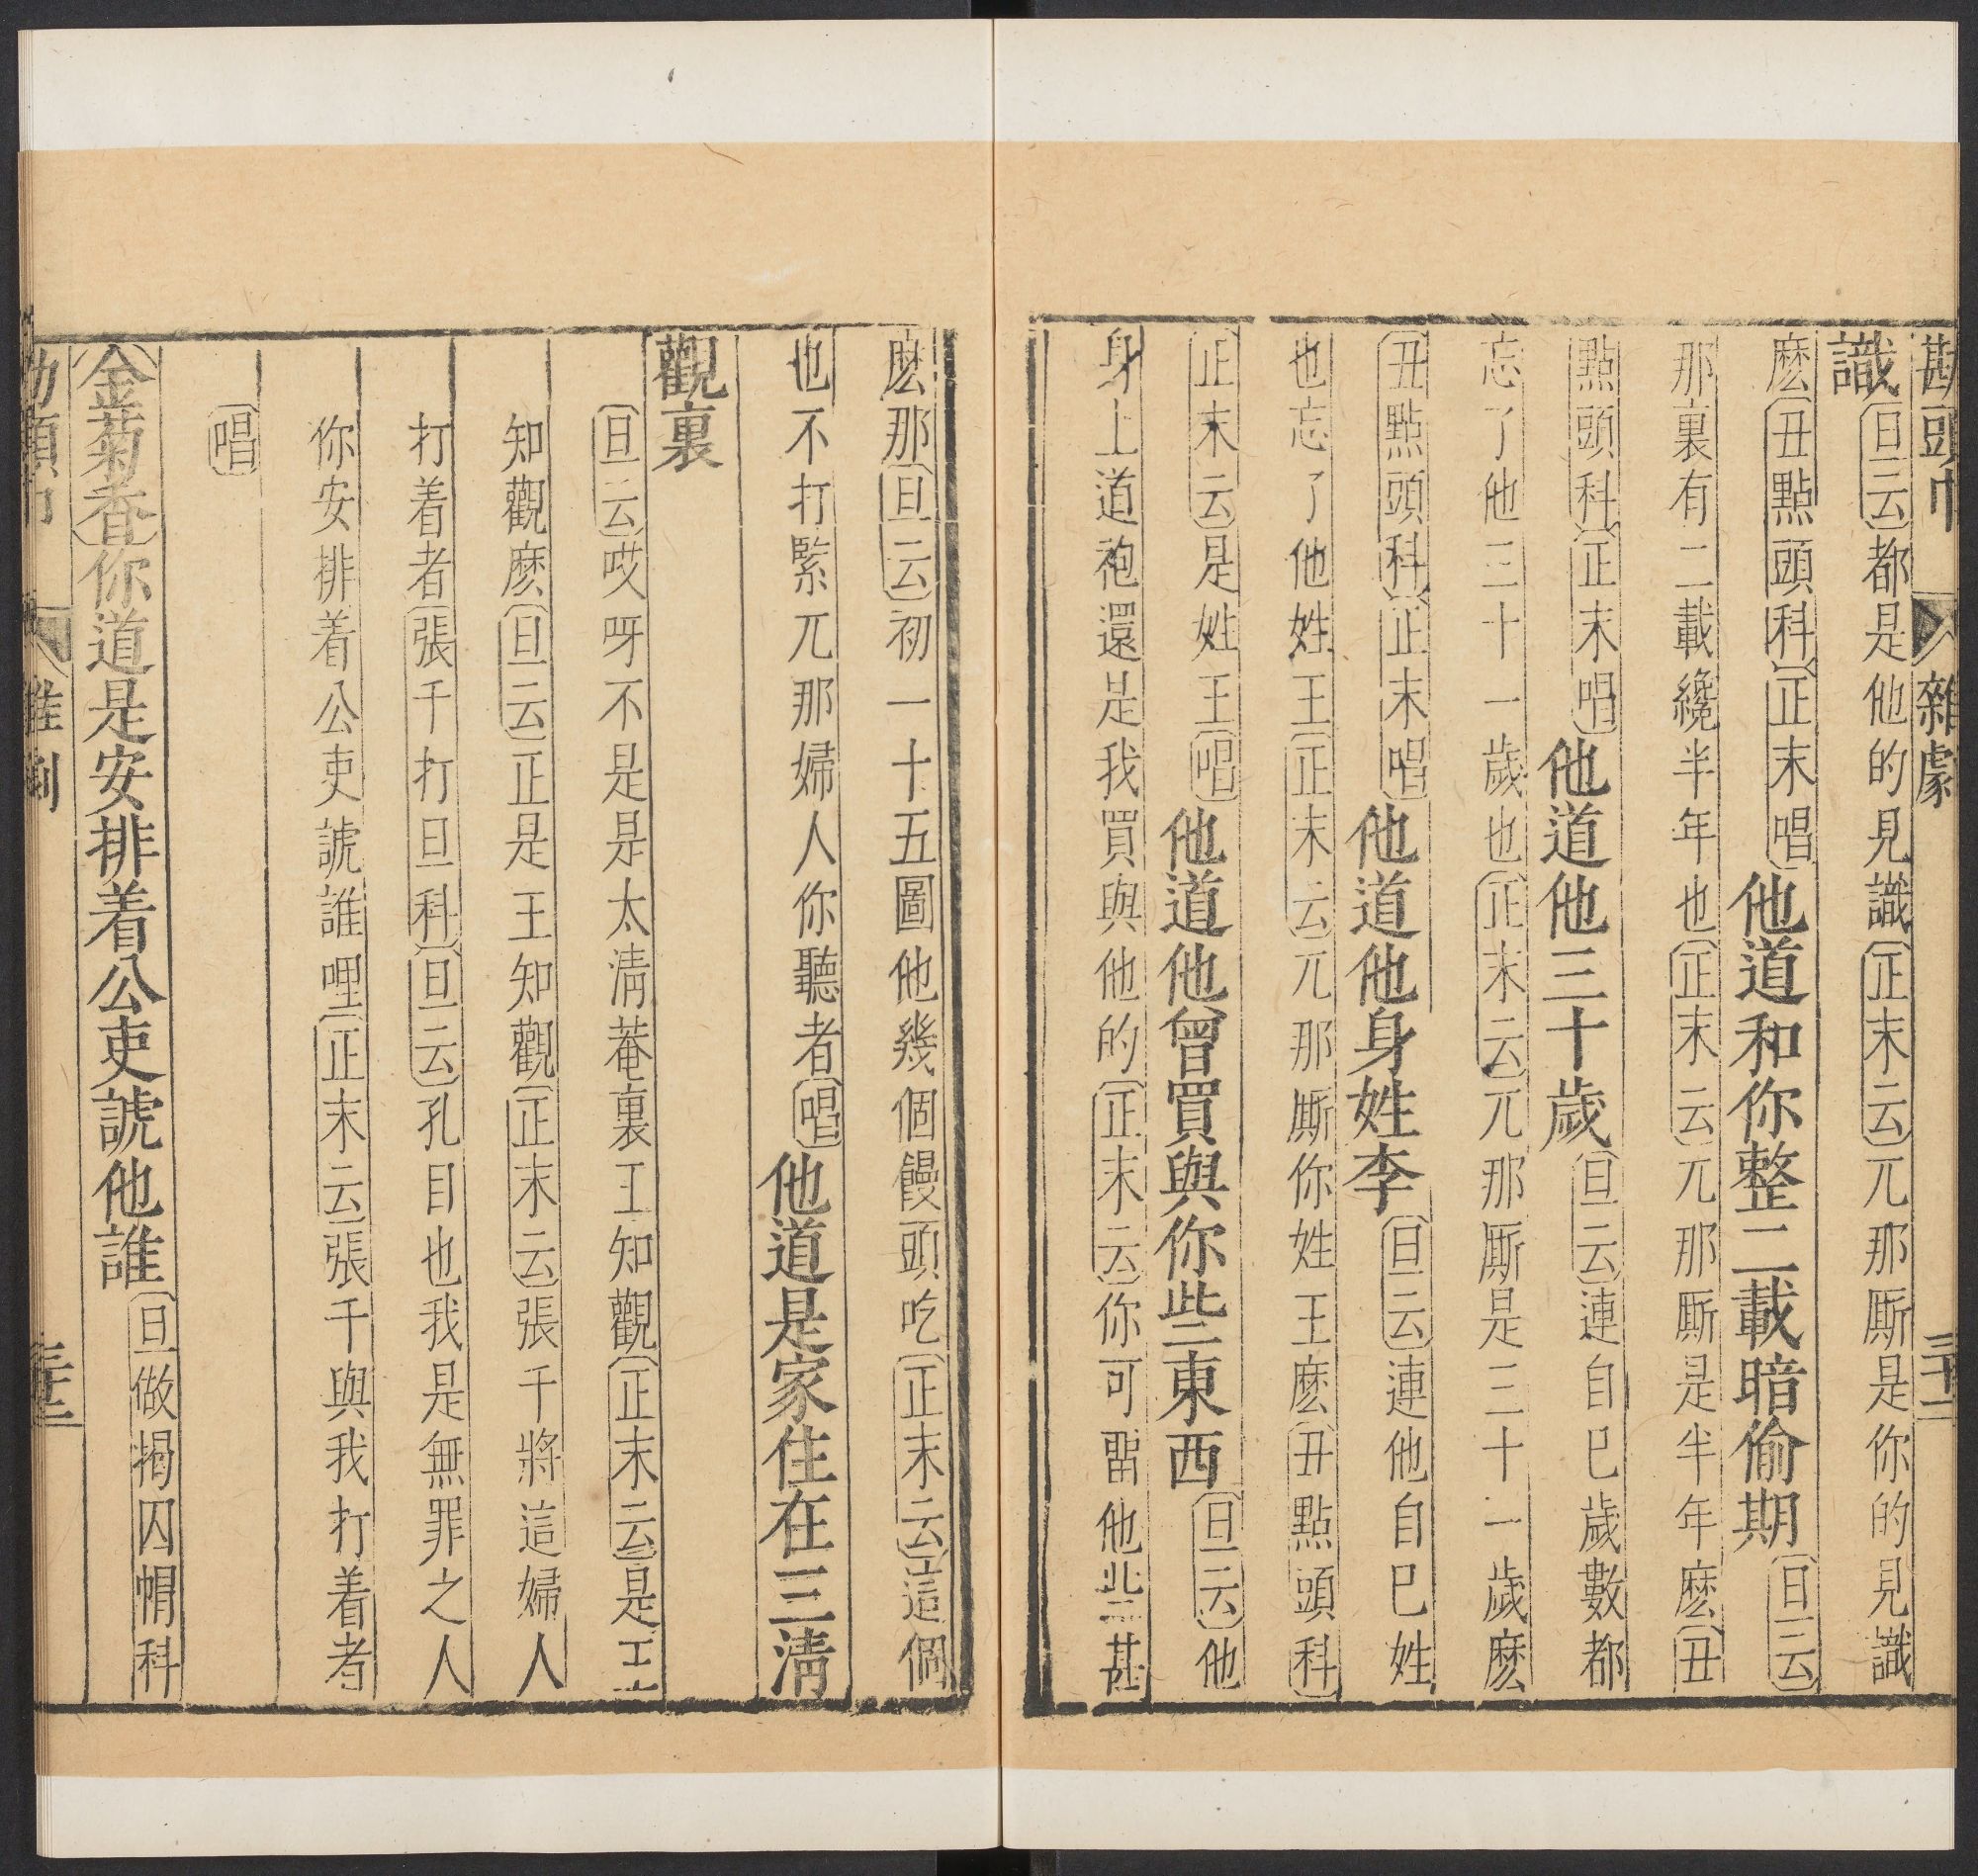 勘頭巾 雜劇 三十二
識旦云都是他的見識正末云兀那厮是你的見識
麽丑點頭科正末唱他道和你整二載暗偷期旦云
那裏有二載纔半年也正末云兀那厮是半年麽丑
點頭科正末唱他道他三十歲旦云連自巳歲數都
忘了他三十一歲也正末云兀那厮是三十一歲麽
丑點頭科正末唱他道他身姓李旦云連他自巳姓
也忘了他姓王正末云兀那厮你姓王麽丑點頭科
正末云是姓王唱他道他曾買與你些東西旦云他
身上道袍還是我買與他的正末云你可畱他些甚
麽那旦云初一十五圖他幾個饅頭吃正末云這個
也不打緊兀那婦人你聽者唱他道是家住在三清
觀裏
旦云哎呀不是是太清菴裏王知觀正末云是王
知觀麽旦云正是王知觀正末云張千將這婦人
打着者張千打旦科旦云孔目也我是無罪之人
你安排着公吏諕誰哩正末云張千與我打着者
唱
金菊香你道是安排着公吏諕他誰旦做搊囚帽科
勘頭巾 雜劇